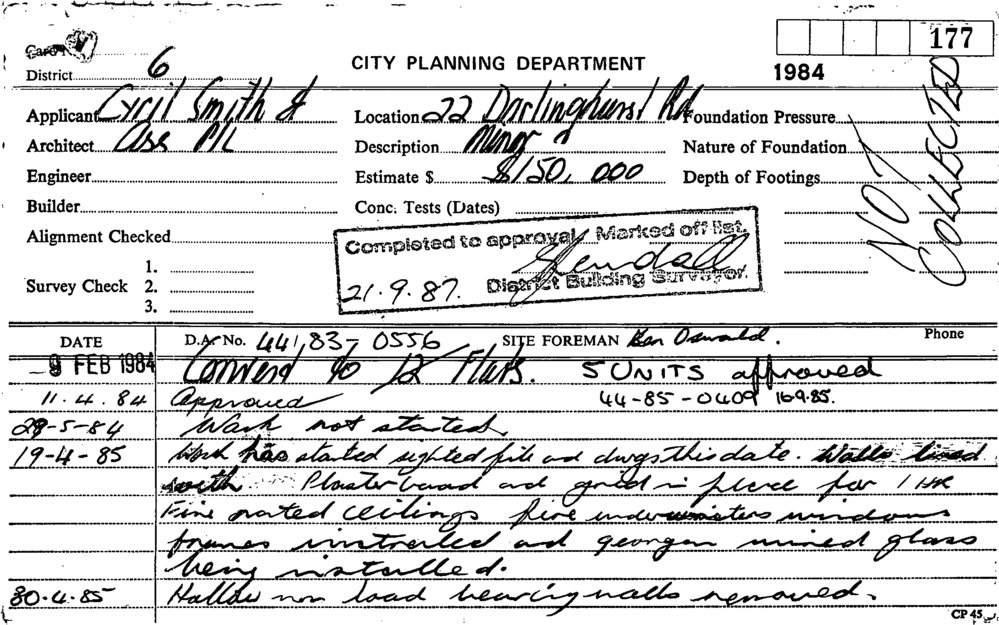 177
Card No.
District 6
CITY PLANNING DEPARTMENT
1984
Applicant Cyril Smith &
Location 22 Darlinghurst Rd
Foundation Pressure
Architect Ass P/L
Description Minor
Nature of Foundation
Engineer
Estimate $ $150,000
Depth of Footings
NOT COLLECTED
Builder
Conc. Tests (Dates)
Alignment Checked
Completed to approval Marked off list.
Survey Check
1.
2.
3.
21.9.87. District Building Surveyor.
DATE
D.A. No. 44/83-0556
SITE FOREMAN Ben Oswald.
Phone
9 FEB 1984 Convert to 12 Flats. 5 UNITS approved
11.4.84 Approved 44-85-0409 16.9.85.
29-5-84 Work not started.
19-4-85 Work has started sighted file and dwgs this date. Walls lined
with Plasterboard and grid in place for 1 HR
Fire rated ceilings fire underwriters windows
frames instralled and georgen wired glass
being installed.
30.4.85 Hallow non load bearing walls removed.
CP 45